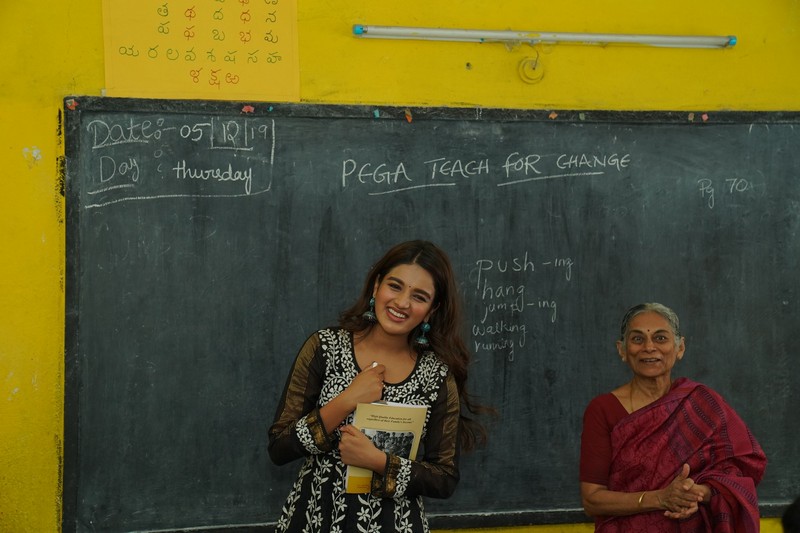 త థ ద ధ న
ప ఫ బ భ మ
య ర ల వ శ ష స హ
ళ క్ష ఱ
Date:- 05/12/19
Day : thursday
PEGA TEACH FOR CHANGE
Pg 70
push -ing
hang
jump -ing
walking
running